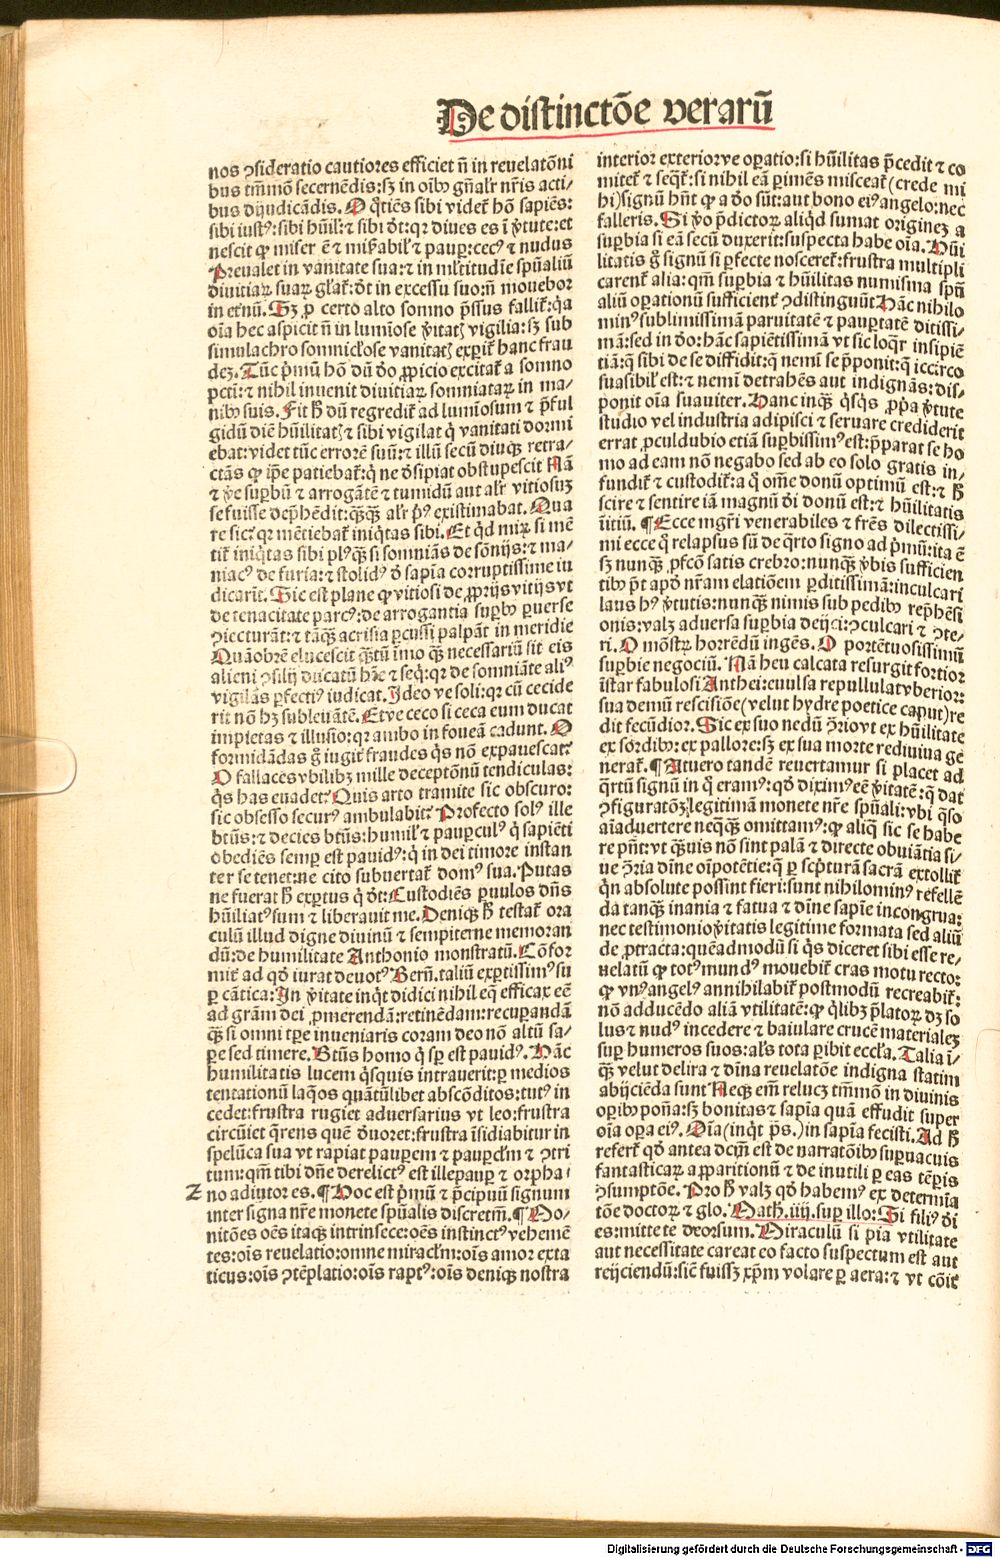 De distinctõe verarũ
nos ꝯsideratio cautiores efficiet ñ in reuelatõni
bus tm̃mõ secernẽdis: sꝫ in oĩbꝰ gñalr̃ nr̃is acti/
bus dijudicãdis. O q̃tiẽs sibi videt̃ hõ sapiẽs:
sibi iustꝰ: sibi hũil̃: ⁊ sibi ðt: qꝛ diues es ĩ ꝟtute: et
nescit ꝙ miser ẽ ⁊ miẜabil̃ ⁊ pauꝑ: cecꝰ ⁊ nudus
Preualet in vanitate sua: ⁊ in ml̃titudĩe spũaliũ
diuitiaꝝ suaꝝ gl̃at̃: ðt in excessu suo: ñ mouebor
in et̃nũ. Sꝫ ꝓ certo alto somno p̃ssus fallit̃: q̃a
oĩa hec aspicit ñ in lumĩose ꝟitatꝭ vigilia: sꝫ sub
simulachro somnicl̃ose vanitatꝭ exꝑit̃ hanc frau
dez. Tũc p̃mũ hõ dũ ðo ꝓpicio excitat̃ a somno
pcti: ⁊ nihil inuenit diuitiaꝝ somniataꝝ in ma/
nibꝰ suis. Fit ħ dũ regredit̃ ad lumĩosum ⁊ p̃ful
gidũ diẽ hũilitatꝭ ⁊ sibi vigilat q̃ vanitati dormi
ebat: videt tũc errorẽ suũ: ⁊ illũ secũ diuqꝫ retra/
ctãs ꝙ ip̃e patiebat̃: q̃ ne ðsipiat obstupescit Nã
⁊ ꝟe suꝑbũ ⁊ arrogãtẽ ⁊ tumidũ aut al̃r vitiosuz
se fuisse dep̃hẽdit: q̃qꝫ al̃r p̃ꝰ existimabat. Qua
re sic? qꝛ mẽtiebat̃ iniq̃tas sibi. Et qd̃ miꝝ si mẽ
tit̃ iniq̃tas sibi plꝰqꝫ si somniãs de sõnijs: ⁊ ma/
niacꝰ de furia: ⁊ stolidꝰ ð sapĩa corruptissime iu
dicarĩt. Sic est plane ꝙ vitiosi de ꝓprijs vitijs vt
de tenacitate parcꝰ: de arrogantia suꝑbꝰ ꝑuerse
ꝯiecturãt: ⁊ tãqꝫ acrisia ꝑcussi palpãt in meridie
Quãobrẽ elucescit qꝫtũ ĩmo qꝫ necessariũ sit eis
alieni ꝯsilij ducatũ hr̃e ⁊ seq̃: qꝛ de somniãte aliꝰ
vigilãs ꝑfectiꝰ iudicat. Ideo ve soli: qꝛ cũ cecide
rit nõ hꝫ subleuãtẽ. Et ve ceco si ceca eum ducat
impietas ⁊ illusio: qꝛ ambo in foueã cadunt. O
formidãdas g̃ iugit̃ fraudes q̃s nõ expauescat?
O fallaces vbilibꝫ mille deceptõnũ tendiculas:
q̃s has euadet? Quis arto tramite sic obscuro:
sic obsesso securꝰ ambulabit? Profecto solꝰ ille
btũs: ⁊ decies btũs: humil̃ ⁊ pauꝑculꝰ q̃ sapiẽti
obediẽs semꝑ est pauidꝰ: q̃ in dei timore instan
ter se tenet: ne cito subuertat̃ domꝰ sua. Putas
ne fuerat ħ exꝑtus q̃ ðt: Custodiẽs ꝑuulos dñs
hũiliatꝰ sum ⁊ liberauit me. Deniqꝫ ħ testat̃ ora
culũ illud digne diuinũ ⁊ sempiterne memoran
dũ: de humilitate Anthonio monstratũ. Cõfor
mit̃ ad qð iurat deuotꝰ Berñ. taliũ exꝑtissimꝰ su
ꝑ cãtica: In ꝟitate inq̃t didici nihil eq̃ efficax eẽ
ad grãm dei ꝓmerendã: retinẽdam: recuꝑandã
qꝫ si omni tꝑe inueniaris coram deo nõ altũ sa/
ꝑe sed timere. Btũs homo q̃ sꝑ est pauidꝰ. Hãc
humilitatis lucem q̃squis intrauerit: ꝑ medios
tentationũ laq̃os quãtũlibet abscõditos: tutꝰ in
cedet: frustra rugiet aduersarius vt leo: frustra
circũiet q̃rens quẽ ðuoret: frustra ĩsidiabitur in
spelũca sua vt rapiat pauꝑem ⁊ pauꝑcl̃m ⁊ ꝯtri
tum: qm̃ tibi dñe derelictꝰ est ille pauꝑ ⁊ orpha/
no adiutor es. ¶ Hoc est p̃mũ ⁊ p̃cipuũ signum
inter signa nr̃e monete spũalis discretiṽ. ¶ Mo/
nitões oẽs itaqꝫ intrinsece: oẽs instinctꝰ vehemẽ
tes: oĩs reuelatio: omne miracl̃m: oĩs amor exta
ticus: oĩs ꝯtẽplatio: oĩs raptꝰ: oĩs deniqꝫ nostra
Z
interior exteriorve oꝑatio: si hũilitas p̃cedit ⁊ co
mitet̃ ⁊ seqt̃: si nihil eã ꝑimẽs misceat̃ (crede mi
hi) signũ hñt ꝙ a ðo sũt: aut bono eiꝰ angelo: nec
falleris. Si ꝟo p̃dictoꝝ aliq̃d sumat originez a
suꝑbia si eã secũ duxerit: suspecta habe oĩa. Hũi
litatis g̃ signũ si ꝑfecte nosceret̃: frustra multipli
carent̃ alia: qm̃ suꝑbia ⁊ hũilitas numisma spũ
aliũ oꝑationũ sufficient̃ ꝯdistinguũt. Hãc nihilo
minꝰ sublimissimã paruitatẽ ⁊ pauꝑtatẽ ditissi/
mã: sed in ðo: hãc sapiẽtissimã vt sic loq̃r insipiẽ
tiã: q̃ sibi de se diffidit: q̃ nemĩ se p̃ponit: q̃ iccirco
suasibil̃ est: ⁊ nemĩ detrahẽs aut indignãs: dis/
ponit oĩa suauiter. Hanc inqꝫ q̃sq̃s ꝓpa ꝟtute
studio vel industria adipisci ⁊ seruare crediderit
errat ꝓculdubio etiã suꝑbissimꝰ est: p̃parat se ho
mo ad eam nõ negabo sed ab eo solo gratis in/
fundit̃ ⁊ custodit̃: a q̃ om̃e donũ optimũ est: ⁊ ħ
scire ⁊ sentire iã magnũ ði donũ est: ⁊ hũilitatis
ĩitiũ. ¶ Ecce mgr̃i venerabiles ⁊ fr̃es dilectissi/
mi ecce q̃ relapsus sũ de q̃rto signo ad p̃mũ: ita ẽ
sꝫ nunqꝫ ꝓfcõ satis crebro: nunqꝫ ꝟbis sufficien
tibꝰ pt̃ apð nr̃am elatiõem ꝑditissimã: inculcari
laus hꝰ ꝟtutis: nunqꝫ nimis sub pedibꝰ rep̃hẽsi
onis: valꝫ aduersa suꝑbia deijci: ꝯculcari ⁊ ꝯte/
ri. O mõstꝝ horrẽdũ ingẽs. O portẽtuosissimũ
suꝑbie negociũ. Nã heu calcata resurgit fortior
ĩstar fabulosi Anthei: euulsa repullulat vberior:
sua demũ rescisiõe (velut hydre poetice caput) re
dit fecũdior. Sic ex suo nedũ ꝯ̃rio vt ex hũilitate
ex sordibꝰ: ex pallore: sꝫ ex sua morte rediuiua ge
nerat̃. ¶ At uero tandẽ reuertamur si placet ad
q̃rtũ signũ in q̃ eramꝰ: qð diximꝰ eẽ ꝟitatẽ: q̃ dat
ꝯfiguratõꝫ legitimã monete nr̃e spũali: vbi q̃so
aĩaduertere neq̃qꝫ omittamꝰ: ꝙ aliq̃ sic se habe
re pñt: vt q̃uis nõ sint palã ⁊ directe obuiãtia si/
ue ꝯ̃ria dĩne oĩpotẽtie: q̃ ꝑ scp̃turã sacrã extollit̃
q̃n absolute possint fieri: sunt nihilominꝰ refellẽ
da tanqꝫ inania ⁊ fatua ⁊ dĩne sapĩe incongrua:
nec testimonio ꝟitatis legitime formata sed aliũ
de ꝓtracta: quẽadmodũ si q̃s diceret sibi esse re/
uelatũ ꝙ totꝰ mundꝰ mouebit̃ cras motu recto:
ꝙ vnꝰ angelꝰ annihilabit̃ postmodũ recreabit̃:
nõ adducẽdo aliã vtilitatẽ: ꝙ q̃libꝫ p̃latoꝝ dꝫ so
lus ⁊ nudꝰ incedere ⁊ baiulare crucẽ materialez
suꝑ humeros suos: al̃s tota ꝑibit eccl̃a. Talia ĩ/
qꝫ velut delira ⁊ dĩna reuelatõe indigna statim
abijciẽda sunt Neqꝫ em̃ relucꝫ tm̃mõ in diuinis
oꝑibꝰ poña: sꝫ bonitas ⁊ sapĩa quã effudit super
oĩa oꝑa eiꝰ. Oĩa (inq̃t ps̃.) in sapĩa fecisti. Ad ħ
refert̃ qð antea dcm̃ est de narratõibꝰ suꝑuacuis
fantasticaꝝ apparitionũ ⁊ de inutili ꝑ eas tẽꝑis
ꝯsumptõe. Pro ħ valꝫ qð habemꝰ ex determĩa
tõe doctoꝝ ⁊ glo. Math̃. iiij. suꝑ illo: Si filiꝰ ði
es: mitte te deorsum. Miraculũ si pia vtilitate
aut necessitate careat eo facto suspectum est aut
reijciendũ: sic̃ fuissꝫ xp̃m volare ꝑ aera: ⁊ vt cõit̃
Digitalisierung gefördert durch die Deutsche Forschungsgemeinschaft - DFG